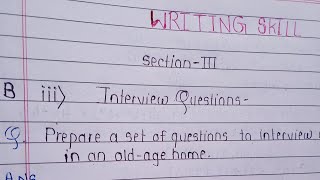 WRITING SKILL
Section-III
B iii) Interview Questions-
Q. Prepare a set of questions to interview
in an old-age home.
Ans